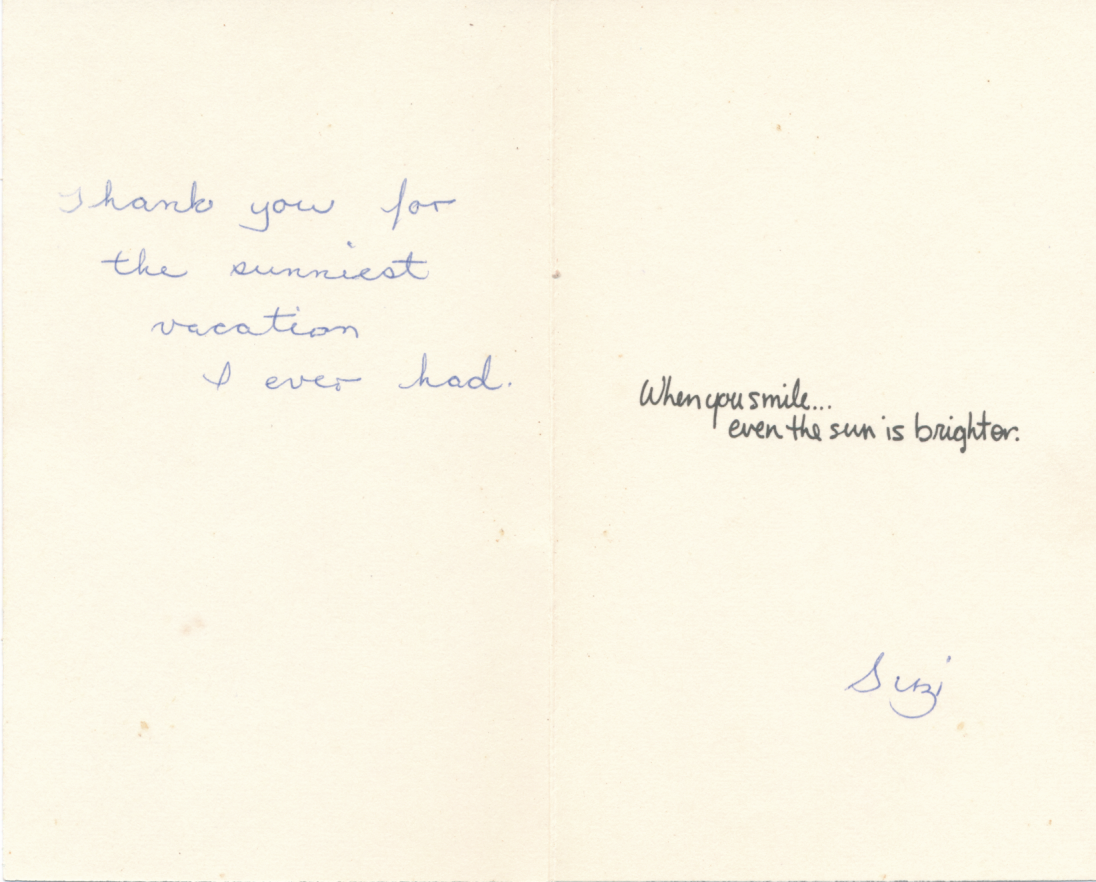 Thank you for
the sunniest
vacation
I ever had.
When you smile...
even the sun is brighter.
Suzi